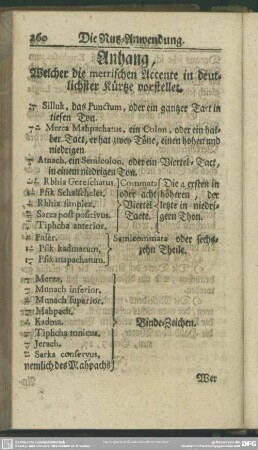 260 Die Nutz-Anwendung.
Anhang,
Welcher die metrischen Accente in deut-
lichster Kürtze vorstellet.
Silluk, das Punctum, oder ein gantzer Tact in
tiefen Ton.
Merca Mahpachatus, ein Colon, oder ein hal-
ber Tact, er hat zwey Töne, einen hohen und
niedrigen.
Atnach, ein Semicolon, oder ein Viertel-Tact,
in einem niedrigen Ton.
Rbhia Gereschatus. Commata Die 4 ersten in
Psik Schalscheler. oder acht höheren, der
Rbhia simplex. Viertel letzte in niedri-
Sarca post positivus. Tacte. gern Thon.
Tiphcha anterior.
Paser. Semicommata oder sechs-
Psik kadmatum. zehn Theile.
Psik mapachatum.
Merca.
Munach inferior.
Munach superior.
Mahpach.
Kadma. Binde-Zeichen.
Tiphcha tonicus.
Jerach.
Sarka conservus,
nemlich des Mahpachs
Wer